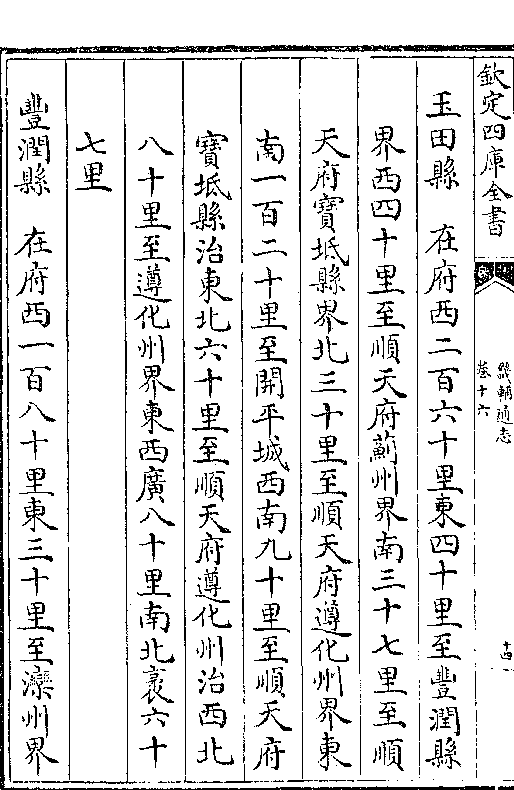 欽定四庫全書
畿輔通志
卷十六
十四
玉田縣　在府西二百六十里東四十里至豐潤縣
界西四十里至順天府薊州界南三十七里至順
天府寶坻縣界北三十里至順天府遵化州界東
南一百二十里至開平城西南九十里至順天府
寶坻縣治東北六十里至順天府遵化州治西北
八十里至遵化州界東西廣八十里南北袤六十
七里
豐潤縣　在府西一百八十里東三十里至灤州界